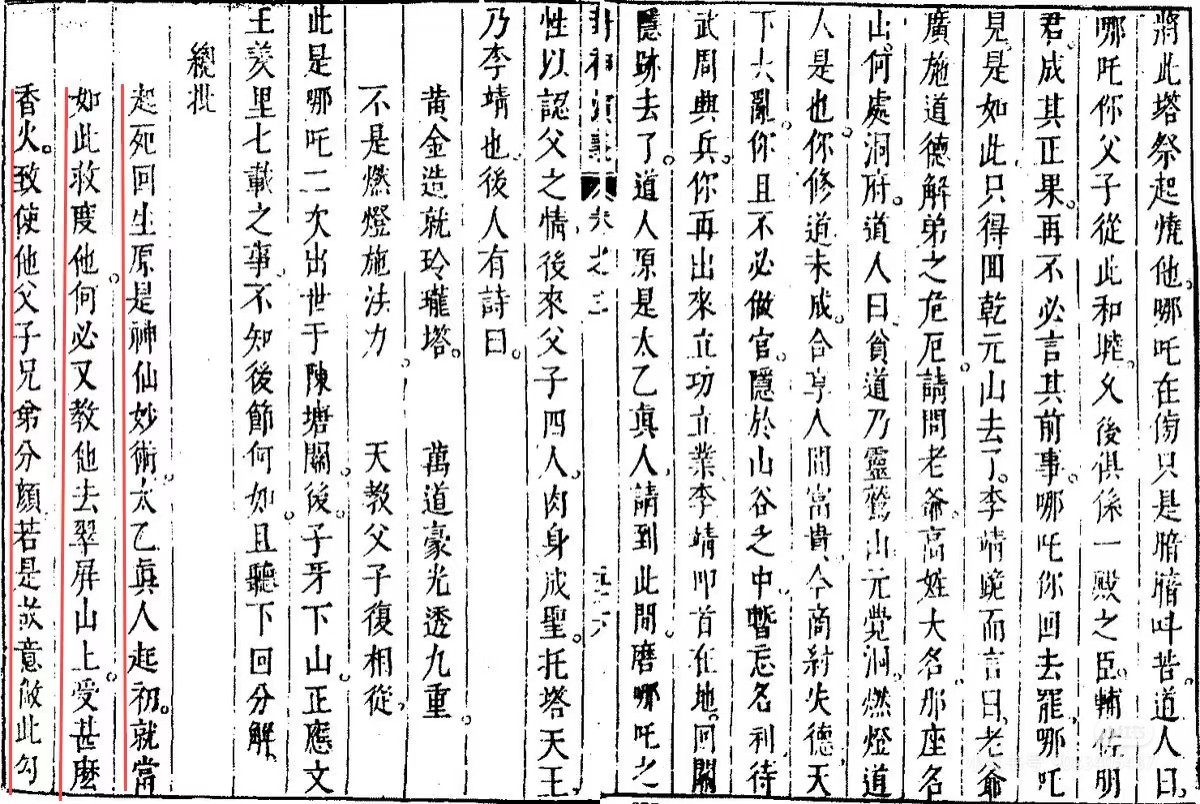 將此塔祭起燒他。哪吒在傍只是暗暗叫苦道人曰。
哪吒你父子從此和睦。久後俱係一殿之臣。輔佐明
君。成其正果。再不必言其前事。哪吒你回去罷。哪吒
見是如此。只得回乾元山去了。李靖跪而言曰。老爺
廣施道德解弟之危厄。請問老爺高姓大名。那座名
山。何處洞府。道人曰。貧道乃靈鷲山元覺洞燃燈道
人是也。你修道未成。合享人間富貴。今商紂失德。天
下大亂。你且不必做官。隱於山谷之中。暫忘名利。待
武周興兵。你再出來立功立業。李靖叩首在地。回關
隱跡去了。道人原是太乙真人。請到此間。磨哪吒之
封神演義 卷之三 五十六
性以認父之情。後來父子四人。肉身成聖。托塔天王
乃李靖也。後人有詩曰。
黃金造就玲瓏塔。 萬道豪光透九重。
不是燃燈施法力。 天教父子復相從。
此是哪吒二次出世于陳塘關。後子牙下山。正應文
王羑里七載之事。不知後節何如。且聽下回分解。
總批
起死回生原是神仙妙術。太乙真人起初。就當
如此救度他。何必又教他去翠屏山上。受甚麼
香火。致使他父子兄弟分顏。若是故意做此勾